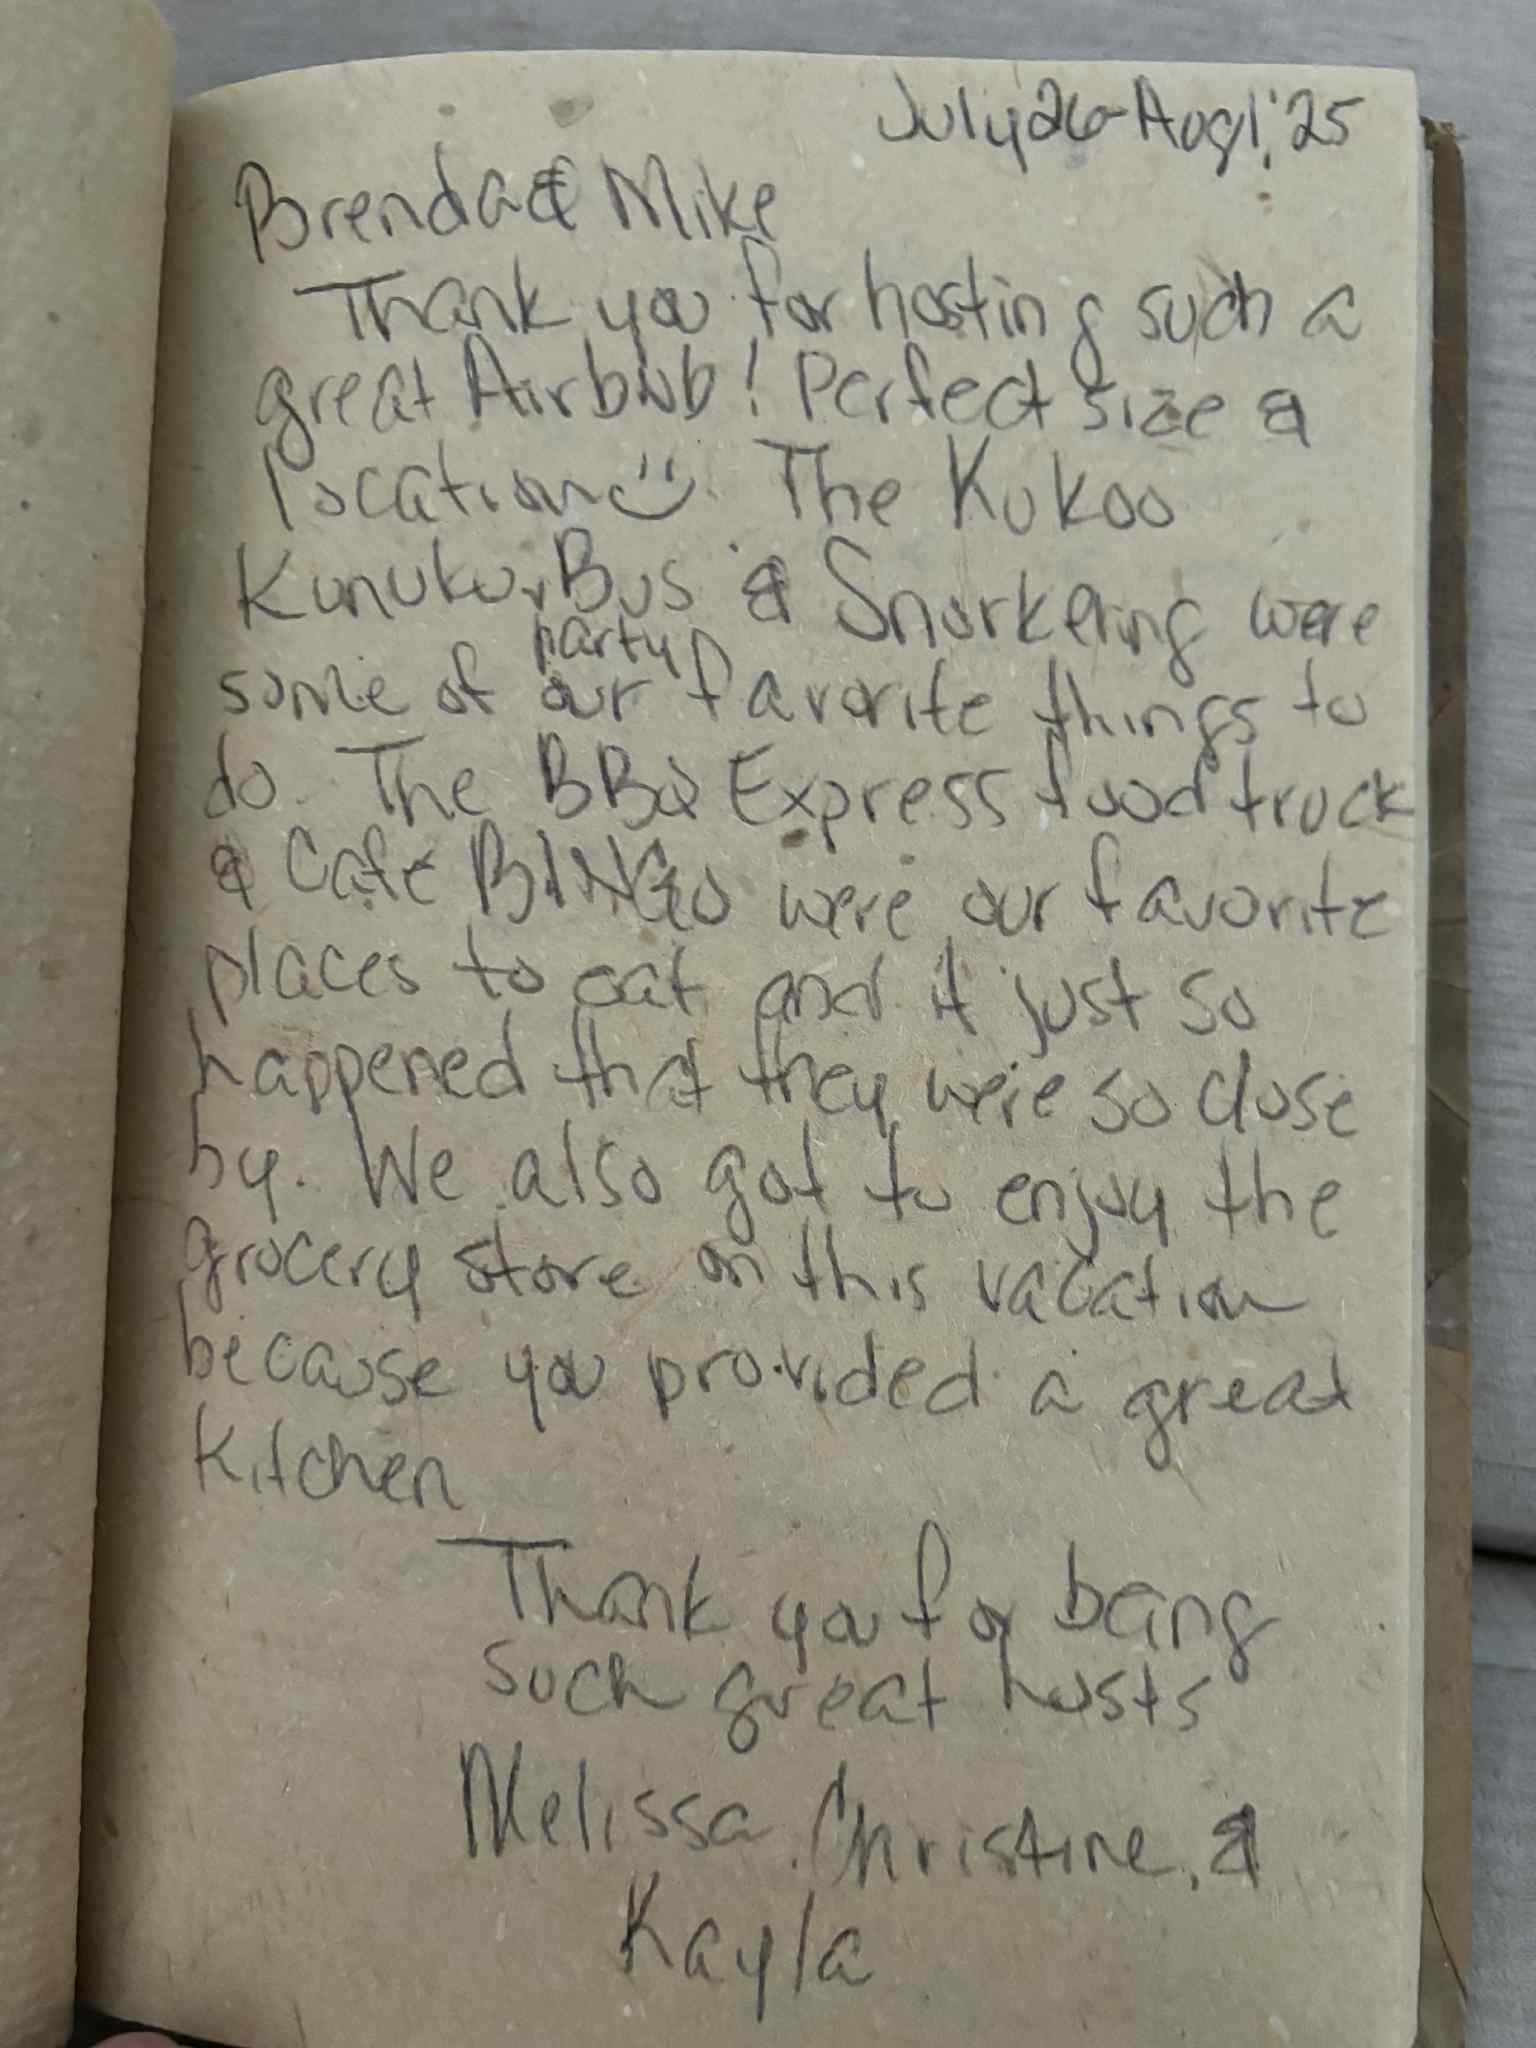 July 26-Aug 1, '25
Brenda & Mike
Thank you for hosting such a
great Airbnb! Perfect size &
location :) The Kukoo
Kunuku party Bus & Snorkeling were
some of our favorite things to
do. The BBQ Express food truck
& Cafe BINGO were our favorite
places to eat and it just so
happened that they were so close
by. We also got to enjoy the
grocery store on this vacation
because you provided a great
kitchen
Thank you for being
such great hosts
Melissa, Christine, &
Kayla